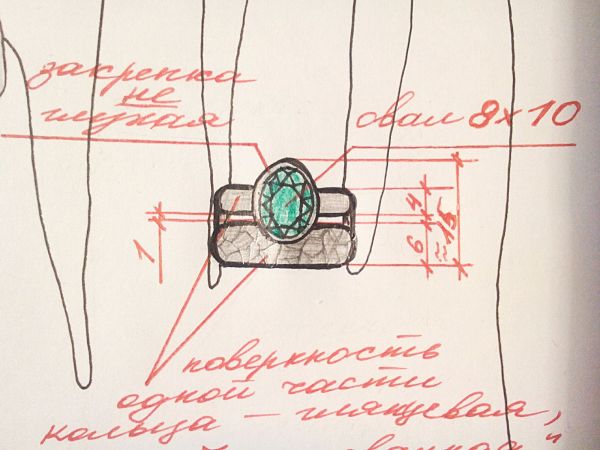 закрепка
не
глухая
овал 8х10
1
4
6
≈15
поверхность
одной части
кольца – глянцевая,